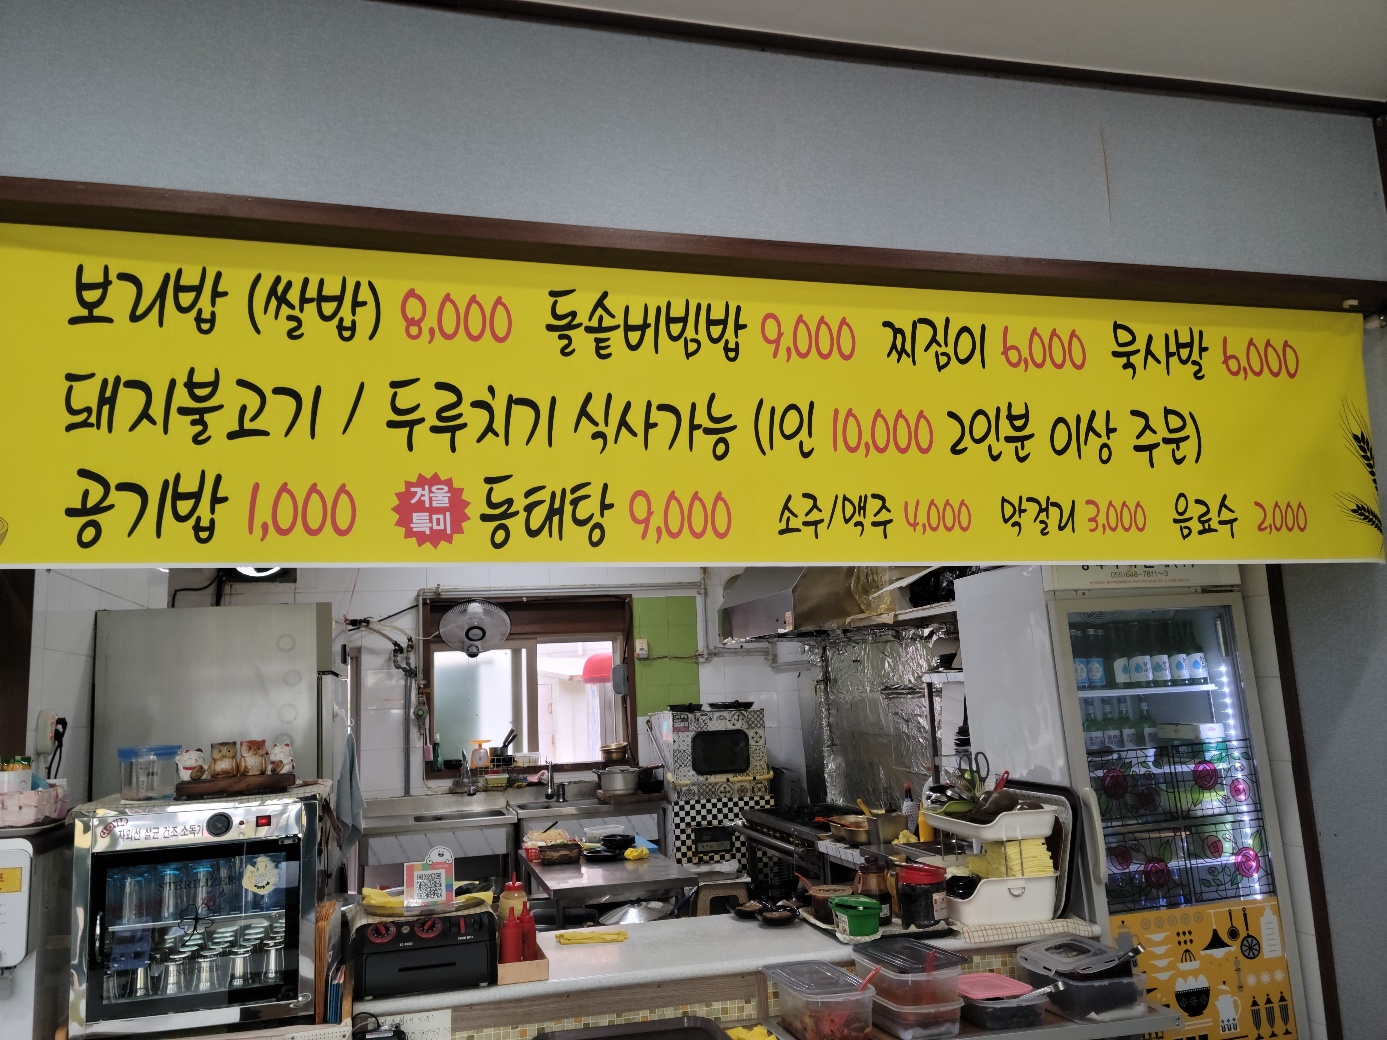 보리밥 (쌀밥) 8,000 돌솥비빔밥 9,000 찌짐이 6,000 묵사발 6,000
돼지불고기 / 두루치기 식사가능 (1인 10,000 2인분 이상 주문)
공기밥 1,000 겨울 특미 동태탕 9,000 소주/맥주 4,000 막걸리 3,000 음료수 2,000
055)648-7811~3
자외선 살균 건조 소독기
STERILIZER